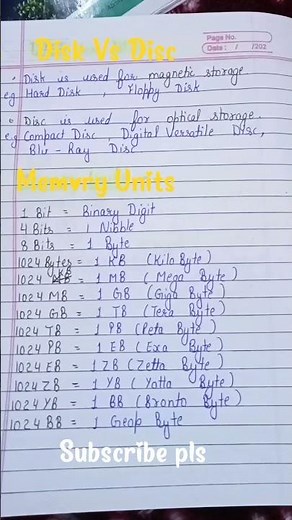 Page No.
Date: / /202
Disk Vs Disc
• Disk is used for magnetic storage
eg Hard Disk , Floppy Disk
• Disc is used for optical storage.
e.g Compact Disc, Digital Versatile Disc,
Blu-Ray Disc
Memory Units
1 Bit = Binary Digit
4 Bits = 1 Nibble
8 Bits = 1 Byte
1024 Bytes = 1 KB (Kilo Byte)
1024 KB = 1 MB (Mega Byte)
1024 MB = 1 GB (Giga Byte)
1024 GB = 1 TB (Tera Byte)
1024 TB = 1 PB (Peta Byte)
1024 PB = 1 EB (Exa Byte)
1024 EB = 1 ZB (Zetta Byte)
1024 ZB = 1 YB (Yotta Byte)
1024 YB = 1 BB (Bronto Byte)
1024 BB = 1 Geop Byte
Subscribe pls